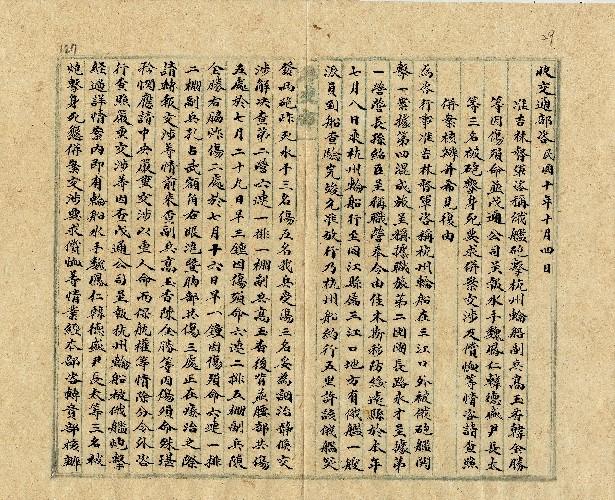 29
收交通部咨 民國十年十月四日
准吉林督軍咨稱俄艦砲擊杭州輪船副兵高玉香韓全勝
等因傷殞命並戊通公司呈報水手魏鳳仁韓德盛尹長太
等三名被砲擊身死要求併案交涉及償恤等情咨請查照
併案核辦並希見復由
為咨行事准吉林督軍咨稱杭州輪船在三江口外被俄砲艦開
擊一案據第四混成旅呈稱據職旅第二團團長路永才呈據第
一營營長孫紹臣呈稱職營奉令由佳木斯移防綏遠縣於本年
七月八日乘杭州輪船行至同江縣屬三江口地方有俄艦一艘
派員到船查驗完竣允准放行乃杭州船約行五里許該俄艦突
127
發為砲炸死水手三名傷五名我兵受傷三名妥為調治靜候交
涉解決查第二營六連一排一棚副兵高玉香後背並腰部共傷
五處於七月二十九日早三鐘因傷殞命六連二排五棚副兵陳
全勝右脇炸傷二處於七月十六日早一鐘因傷殞命六連一排
二棚副兵孔占武額角右眼准暨胸部共傷三處正在療治之際
請轉報交涉等情前來查副兵高玉香陳全勝等因傷殞命殊堪
矜憫應請中央嚴重交涉以重人命而保航權等情除分令外咨
行查照嚴重交涉等因查戊通公司呈報杭州輪船被俄艦砲擊
經過詳情案內即有輪船水手魏鳳仁韓德盛尹長太等三名被
炮擊身死懇併案交涉要求償恤等情業經本部咨轉貴部核辦